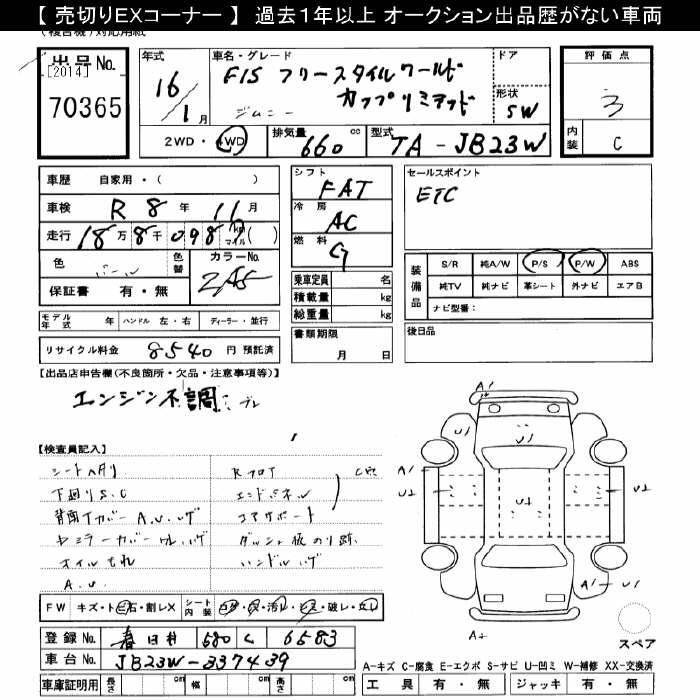 【 売切りEXコーナー 】 過去1年以上 オークション出品歴がない車両
出品No.
[2014]
70365
年式
16/1月
車名・グレード
FIS フリースタイルワールド
カップリミテッド
ジムニー
ドア
形状
SW
評価点
3
内装
C
2WD・4WD
排気量 660 cc
型式 TA-JB23W
車歴 自家用・( )
車検 R 8年 11月
走行 18万8千098 km マイル( )
色 パール
色替
カラーNo. ZA5
保証書 有・無
シフト
FAT
冷房
AC
燃料
G
乗車定員 名
積載量 kg
総重量 kg
書類期限
月 日
セールスポイント
ETC
装備品
S/R 純A/W P/S P/W ABS
純TV 純ナビ 革シート 外ナビ エアB
ナビ型番：
後日品
モデル年式 年 ハンドル 左・右 ディーラー・並行
リサイクル料金 8540 円 預託済
【出品店申告欄(不良箇所・欠品・注意事項等)】
エンジン不調
【検査員記入】
下廻りS.C
A.U.
コアサポート
FW キズ・トビ石・割レX シート内装
登録No. 春日井 580 く 6583
車台No. JB23W-337439
車庫証明用 cm 幅 cm 高さ cm
A1
U1
U1
U1
A1
U2
U2
U2
A1
U1
A2
スペア
A-キズ C-腐食 E-エクボ S-サビ U-凹ミ W-補修 XX-交換済
工具 有・無 ジャッキ 有・無